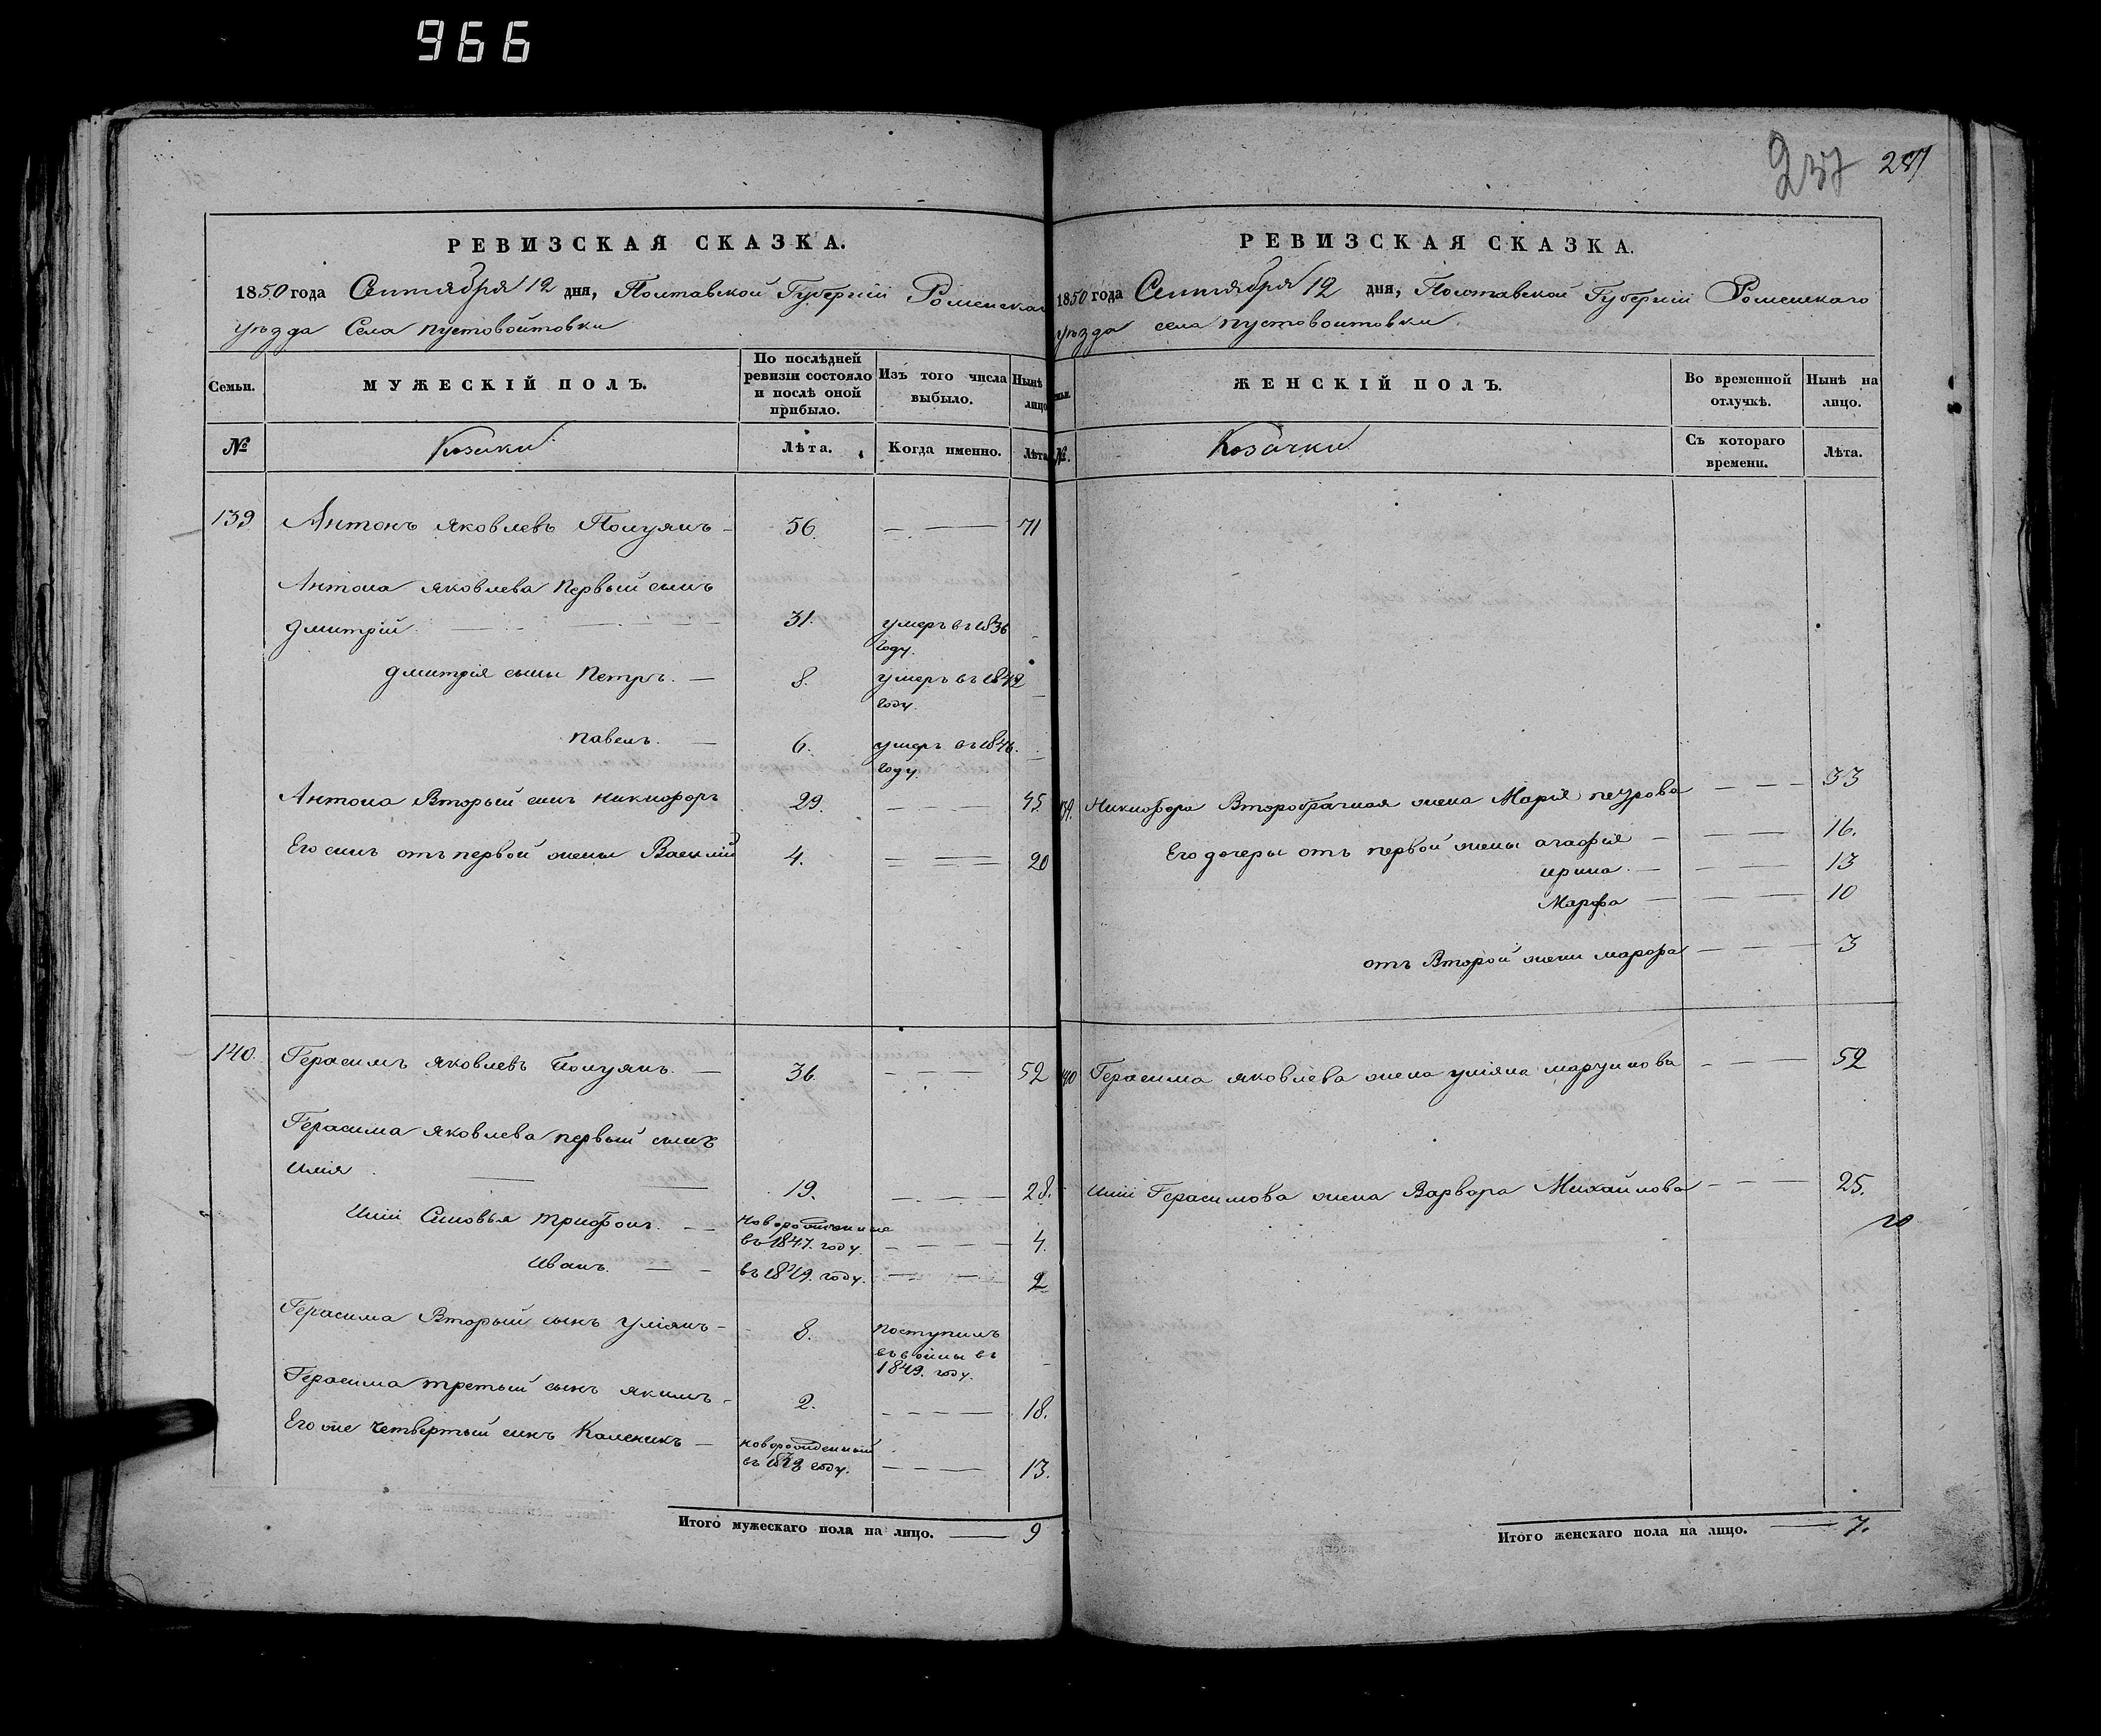 966
237 287
РЕВИЗСКАЯ СКАЗКА.
1850 года Сентября 12 дня, Полтавской Губерніи Роменскаг
уѣзда Села пустовойтовки
Семьи.
МУЖЕСКІЙ ПОЛЪ.
По послѣдней ревизіи состояло и послѣ оной прибыло.
Изъ того числа выбыло.
Нынѣ лицо
№
Козаки
Лѣта.
Когда именно.
Лѣта
139 Антонъ яковлевъ Полуянъ — 56. — — 71
Антона яковлева Первый сынъ
дмитрій. — 31. умеръ въ 1836 году. —
дмитрія сыны Петръ. — 8. умеръ въ 1842 году. —
павелъ. — 6. умеръ въ 1846. году. —
Антона Вторый сынъ никифоръ 29. — — — 45.
Его сынъ отъ первой жены Василій 4. — — 20
140. Герасимъ яковлевъ Полуянъ. — 36. — — — 52
Герасима яковлева первый сынъ
илія. — 19. — — — 28.
иліи Сыновья трифонъ. — — новорожденные въ 1847. году. — — — 4.
иванъ. — — въ 1849. году. — — — 2
Герасима Вторый сынъ уліянъ — 8. поступилъ въ войны въ 1849. году. —
Герасима третый сынъ якимъ — 2. — — — — 18.
Его же четвертый сынъ Каленикъ — новорожденный въ году. — — — — 13.
Итого мужескаго пола на лицо. — 9
РЕВИЗСКАЯ СКАЗКА.
1850 года Сентября 12 дня, Полтавской Губерніи Роменскаго
уѣзда села пустовойтовки.
ЖЕНСКІЙ ПОЛЪ.
Во временной отлучкѣ.
Нынѣ на лицо.
№.
Козачки
Съ котораго времени.
Лѣта.
Никифора Второбрачная жена Марія петрова — — — 33
Его дочеры отъ первой жены агафія — — — 16.
ирина. — — — 13
Марфа — — — 10
отъ Второй жени марфа — — — 3
140 Герасима яковлева жена уліяна — — — 52
иліи Герасимова жена Варвара Михайлова — — — 25.
Итого женскаго пола на лицо. — 7.